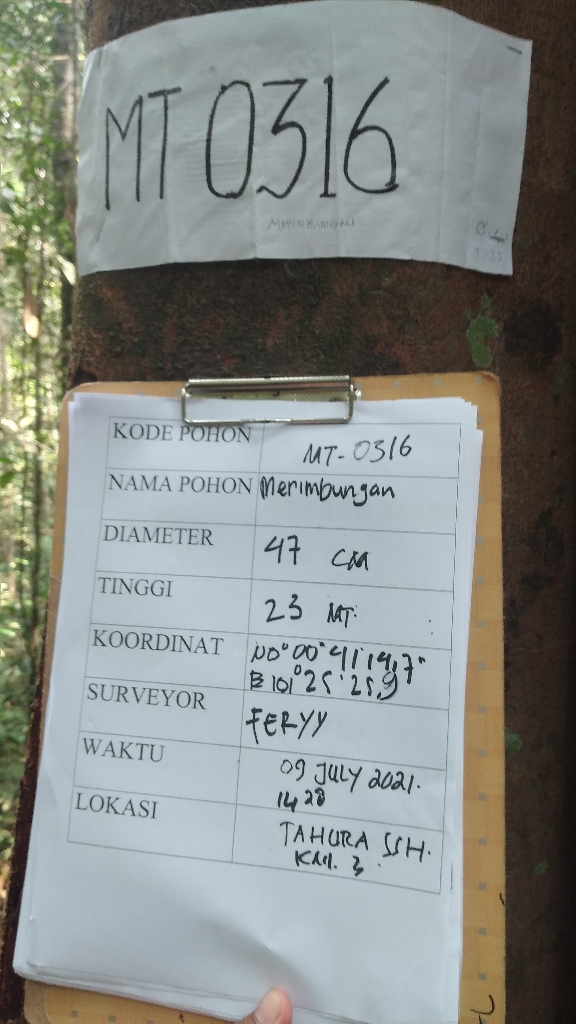 MT 0316
MERIMBUNGAN
KODE POHON MT-0316
NAMA POHON Merimbungan
DIAMETER 47 CM
TINGGI 23 MT.
KOORDINAT N0°00°41'14,7"
E 101°25'25,9
SURVEYOR FERYY
WAKTU 09 JULY 2021.
14 28
LOKASI TAHURA SSH.
KM. 3